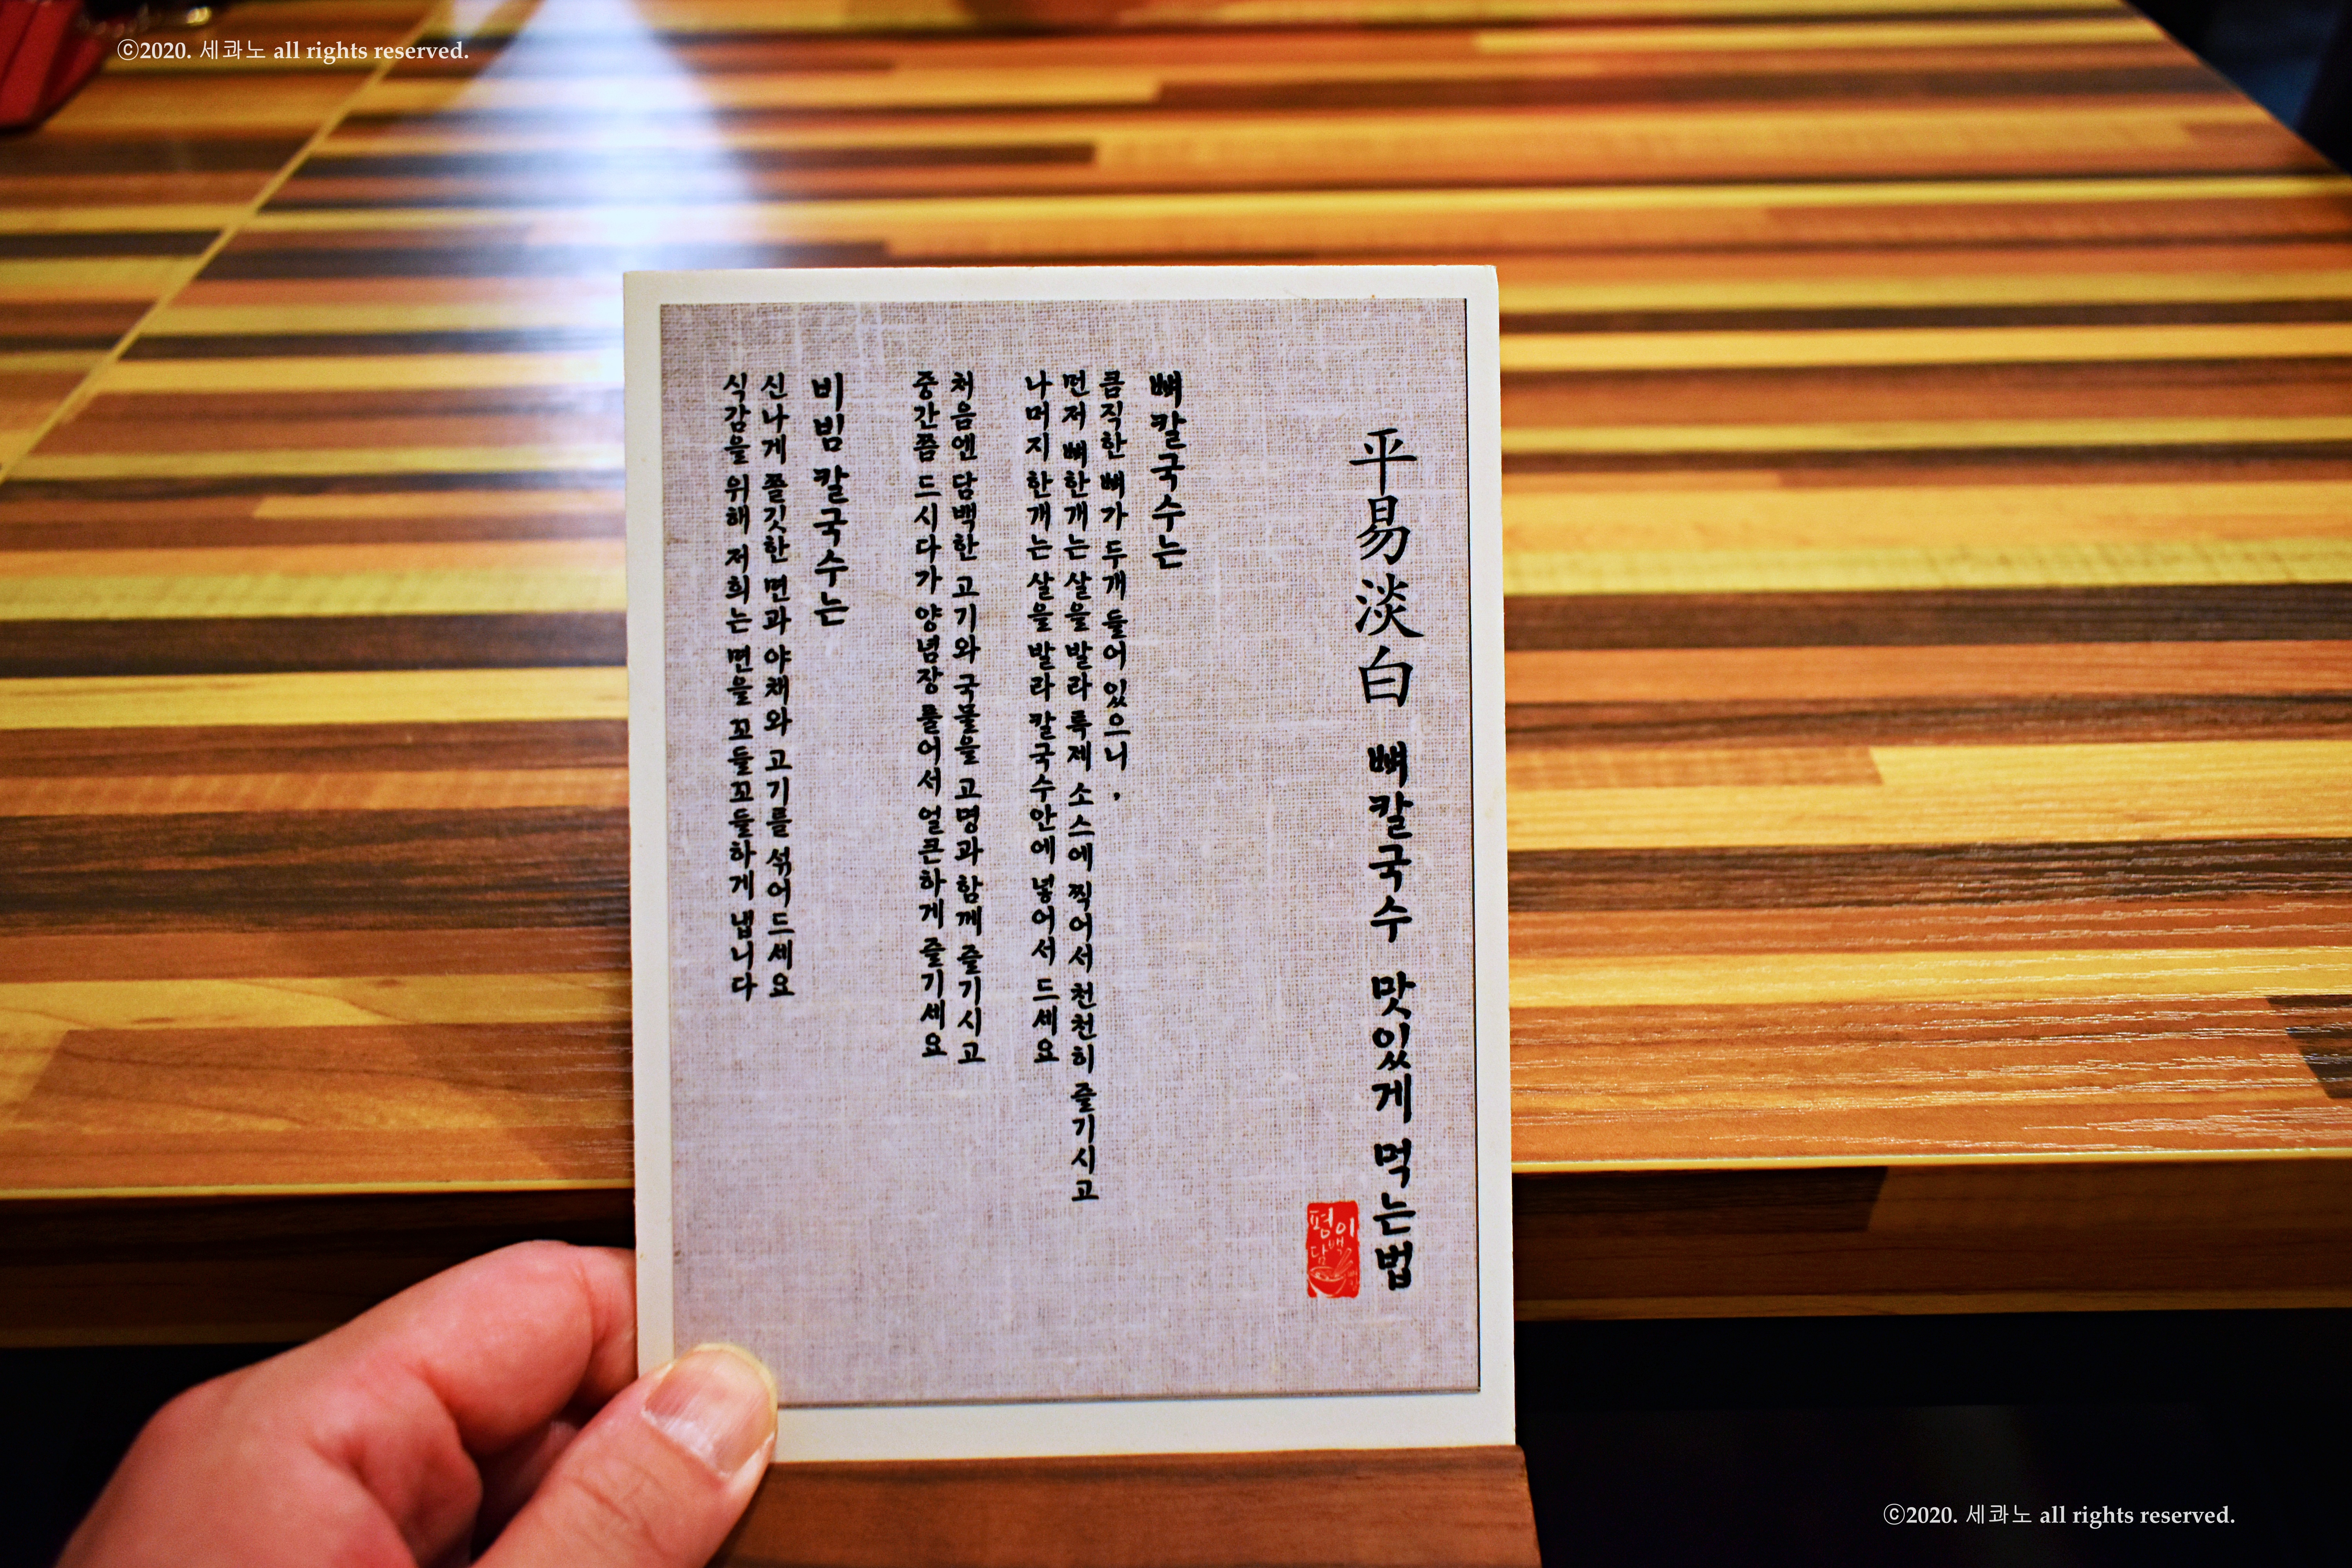 ⓒ2020. 세콰노 all rights reserved.
平易淡白 뼈칼국수 맛있게 먹는법
평이
담백
뼈칼국수는
큼직한 뼈가 두개 들어 있으니,
먼저 뼈한개는 살을 발라 특제 소스에 찍어서 천천히 즐기시고
나머지 한개는 살을 발라 칼국수안에 넣어서 드세요
처음엔 담백한 고기와 국물을 고명과 함께 즐기시고
중간쯤 드시다가 양념장 풀어서 얼큰하게 즐기세요
비빔 칼국수는
신나게 쫄깃한 면과 야채와 고기를 섞어 드세요
식감을 위해 저희는 면을 꼬들꼬들하게 냅니다
ⓒ2020. 세콰노 all rights reserved.